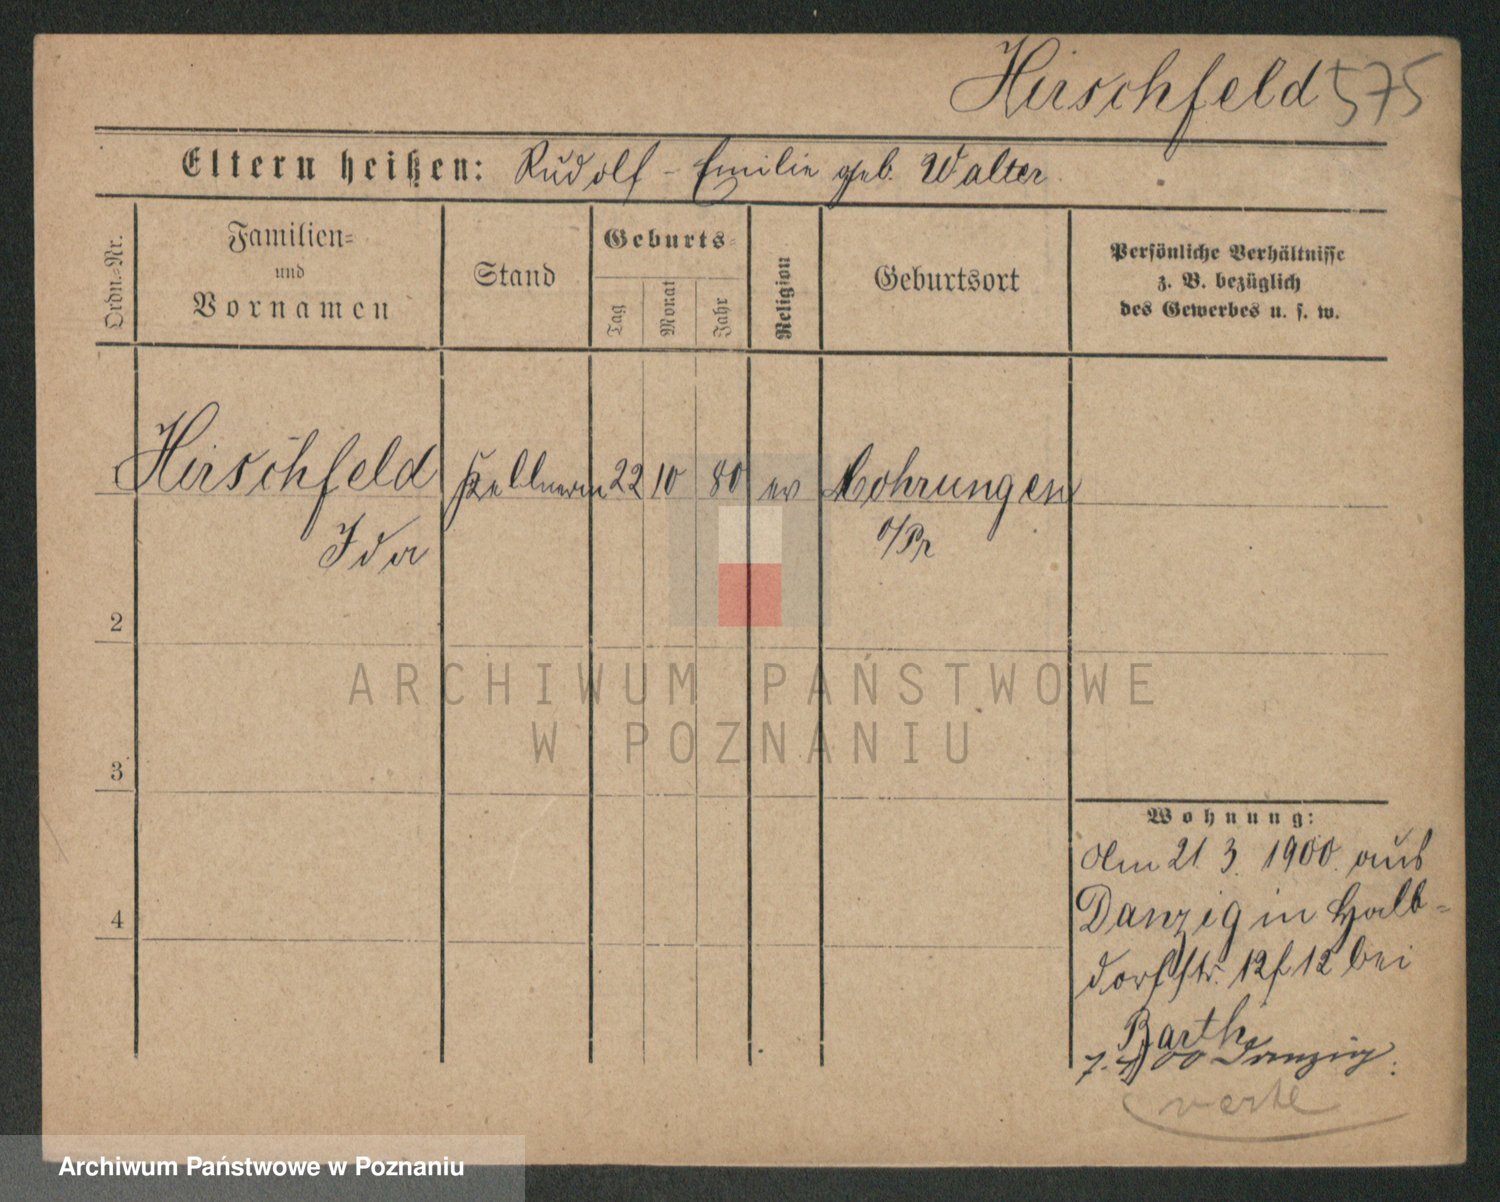 Hirschfeld 575
Eltern heißen: Rudolf - Emilie geb. Walter.
Ordn.=Nr.
Familien=
und
Vornamen
Stand
Geburts=
Tag
Monat
Jahr
Religion
Geburtsort
Persönliche Verhältnisse
z. B. bezüglich
des Gewerbes u. s. w.
1 Hirschfeld Kellnerin 22 10 80 ev Mohrungen
Ida o/Pr
2
3
4
Wohnung:
Am 21. 3. 1900. aus
Danzig in Halb-
dorfstr. 12f 12 bei
Barth
7. 00 Danzig.
ARCHIWUM PAŃSTWOWE
W POZNANIU
Archiwum Państwowe w Poznaniu